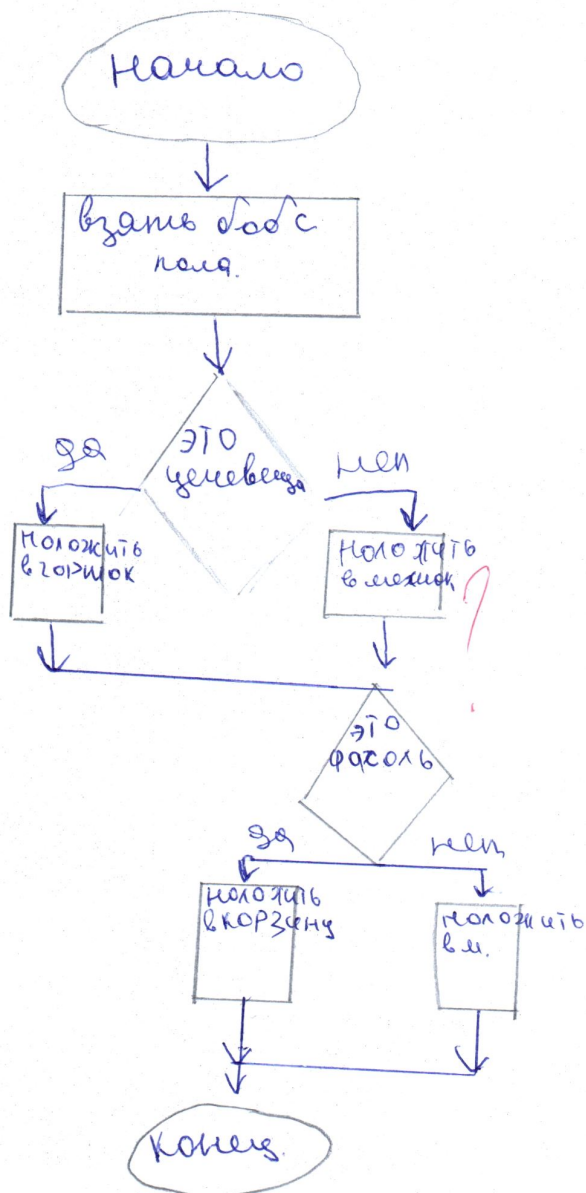 Начало
взять боб с
пола.
да
ЭТО
чечевица
нет
положить
в горшок
положить
в мешок
?
ЭТО
фасоль
да
нет
положить
в корзину
положить
в м.
конец.